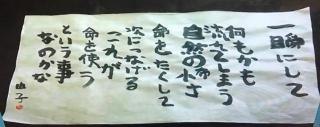 一瞬にして
何もかも
流されてしまう
自然の中の小さ
命をたくして
次につなげる
これが
命を使う
という事
なのかな